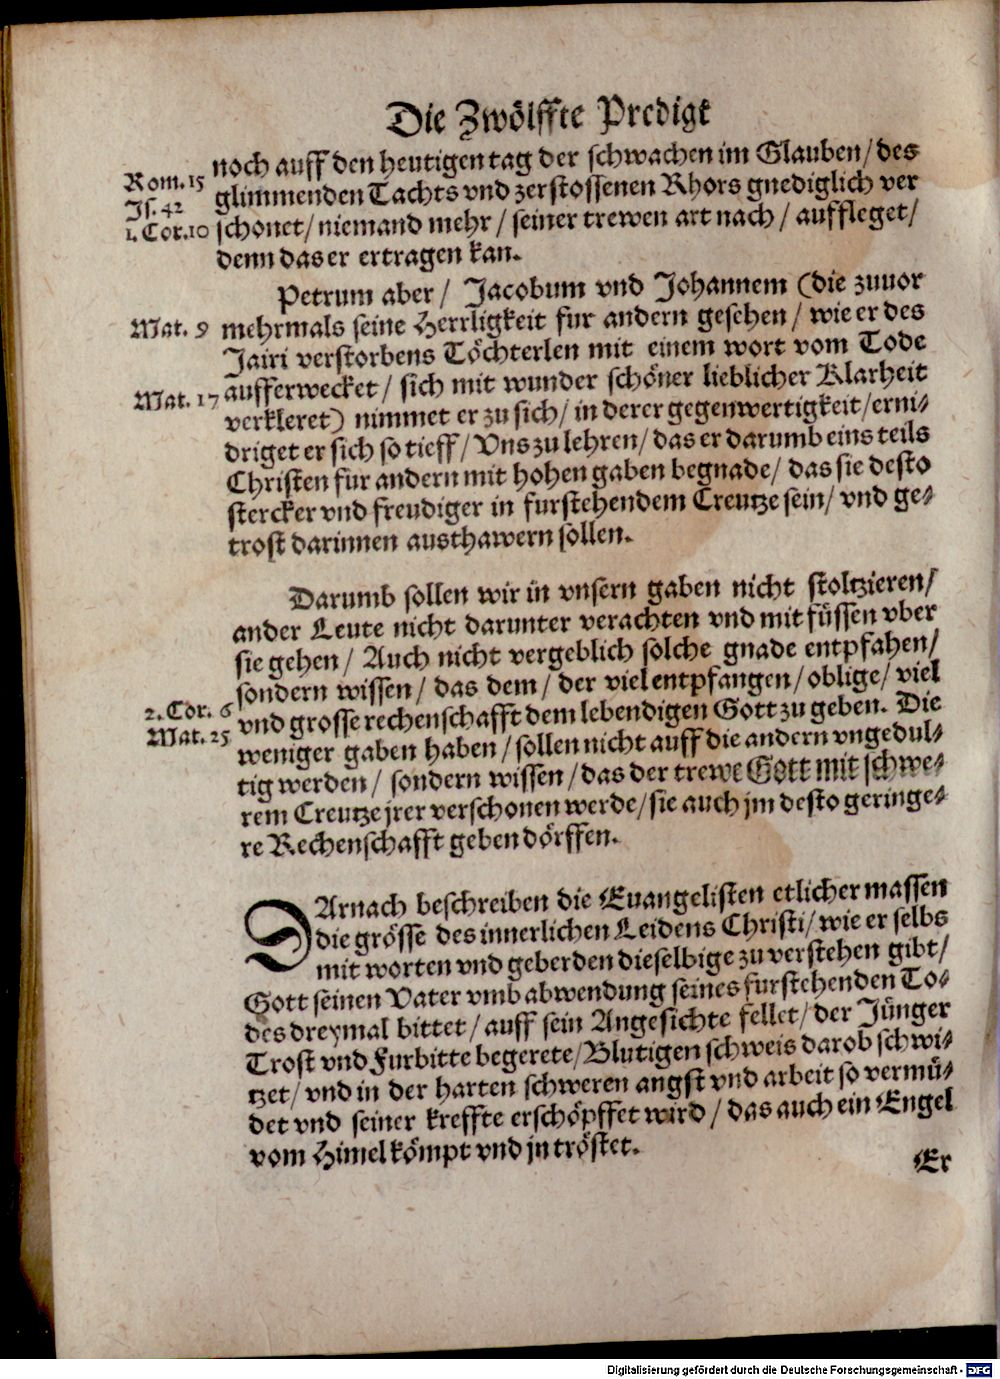 Die Zwölffte Predigt
noch auff den heutigen tag der schwachen im Glauben/ des
Rom. 15
glimmenden Tachts vnd zerstossenen Rhors gnediglich ver
Js. 42
schonet/ niemand mehr/ seiner trewen art nach/ auffleget/
1. Cor. 10
denn das er ertragen kan.
Petrum aber/ Jacobum vnd Johannem (die zuuor
Mat. 9
mehrmals seine Herrligkeit fur andern gesehen/ wie er des
Jairi verstorbens Töchterlen mit einem wort vom Tode
Mat. 17
aufferwecket/ sich mit wunder schöner lieblicher Klarheit
verkleret) nimmet er zu sich/ in derer gegenwertigkeit/ erni-
driget er sich so tieff/ Vns zu lehren/ das er darumb eins teils
Christen fur andern mit hohen gaben begnade/ das sie desto
stercker vnd freudiger in furstehendem Creutze sein/ vnd ge-
trost darinnen austhawern sollen.
Darumb sollen wir in vnsern gaben nicht stoltzieren/
ander Leute nicht darunter verachten vnd mit füssen vber
sie gehen/ Auch nicht vergeblich solche gnade entpfahen/
sondern wissen/ das dem/ der viel entpfangen/ oblige/ viel
2. Cor. 6
vnd grosse rechenschafft dem lebendigen Gott zu geben. Die
Mat. 25
weniger gaben haben/ sollen nicht auff die andern vngedul-
tig werden/ sondern wissen/ das der trewe Gott mit schwe-
rem Creutze jrer verschonen werde/ sie auch jm desto geringe-
re Rechenschafft geben dörffen.
DArnach beschreiben die Euangelisten etlicher massen
die grösse des innerlichen Leidens Christi/ wie er selbs
mit worten vnd geberden dieselbige zu verstehen gibt/
Gott seinen Vater vmb abwendung seines furstehenden To-
des dreymal bittet/ auff sein Angesichte fellet/ der Jünger
Trost vnd Furbitte begerete/ Blutigen schweis darob schwi-
tzet/ vnd in der harten schweren angst vnd arbeit so vermü-
det vnd seiner kreffte erschöpffet wird/ das auch ein Engel
vom Himel kömpt vnd jn tröstet.
Er
Digitalisierung gefördert durch die Deutsche Forschungsgemeinschaft - DFG